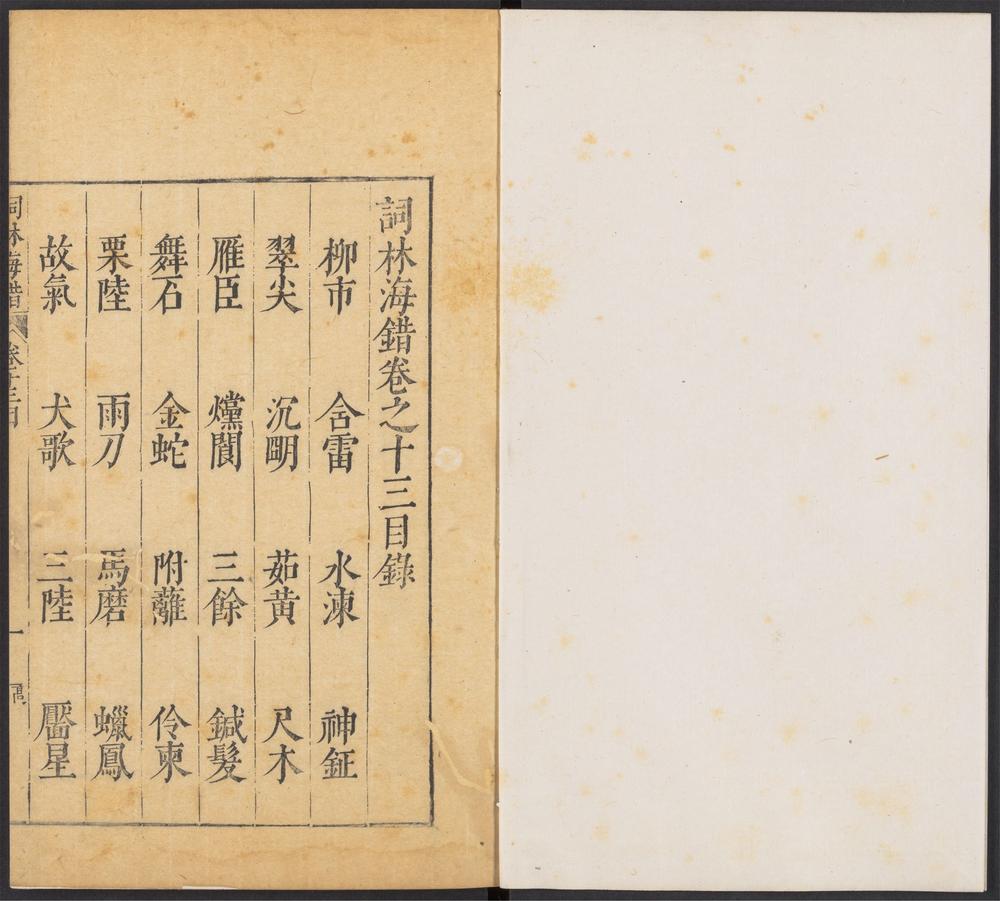 詞林海錯卷之十三目錄
柳市 含雷 水湅 神鉦
翠尖 沉明 茹黃 尺木
雁臣 爣閬 三餘 鍼髮
舞石 金蛇 附蘺 伶柬
栗陸 雨刀 馬磨 蠟鳳
故氣 犬歌 三陸 靨星
詞林海錯 卷十三目 一